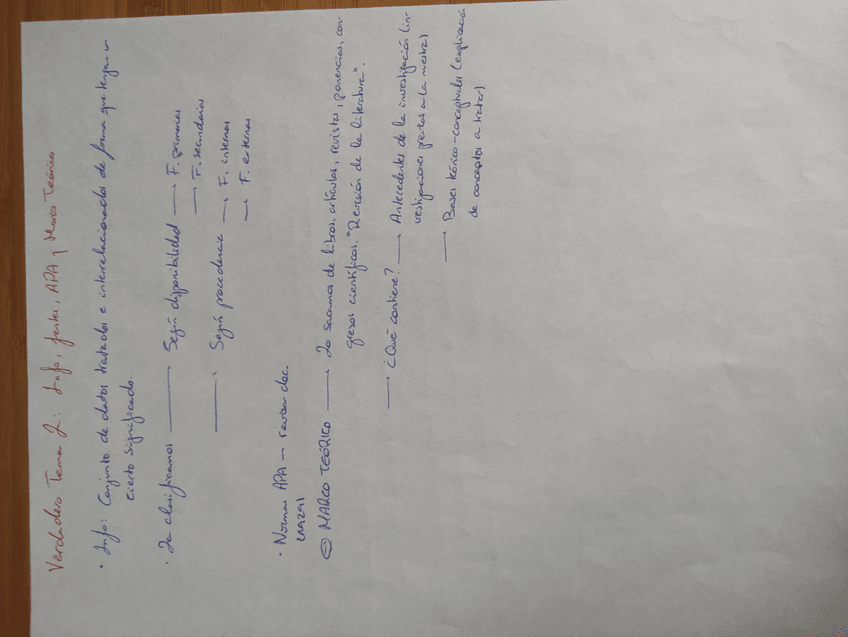 Verdadero Tema 2: Info, fuentes, APA y Marco Teórico
· Info: Conjunto de datos tratados e interrelacionados de forma que tengan un
cierto significado.
· La clasificamos — Según disponibilidad — F. primarias
— F. secundarias
— Según procedencia — F. internas
— F. externas
· Normas APA — revisar doc.
MARCO TEÓRICO — Lo sacamos de libros, artículos, revistas, ponencias, con-
gresos científicos. "Revisión de la literatura".
— ¿Qué contiene? — Antecedentes de la investigación (in-
vestigaciones previas a la nuestra)
— Bases teórico-conceptuales (explicación
de conceptos a tratar)